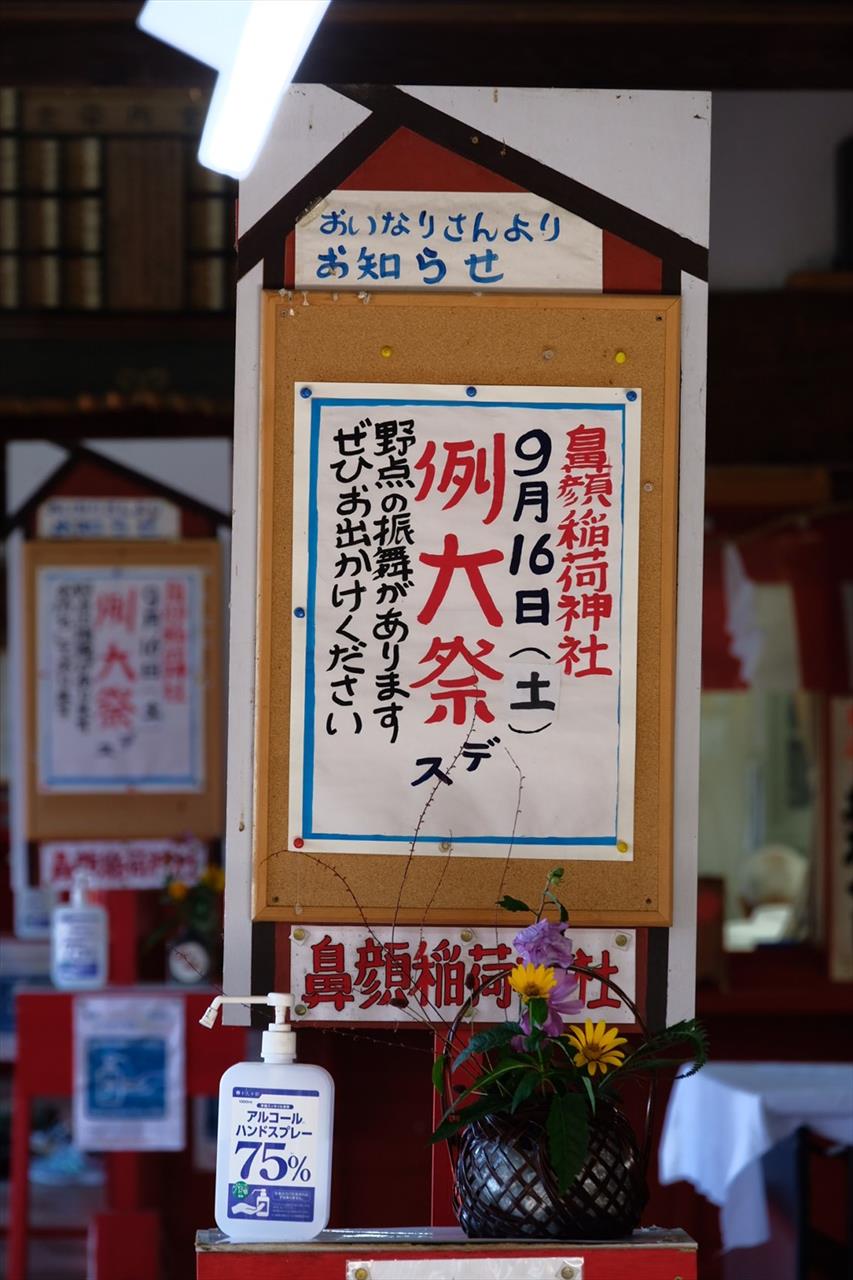 おいなりさんより
お知らせ
鼻顔稲荷神社
9月16日(土)
例大祭
デス
野点の振舞があります
ぜひお出かけください
鼻顔稲荷
社
アルコール
ハンドスプレー
75%
お知らせ
例大祭